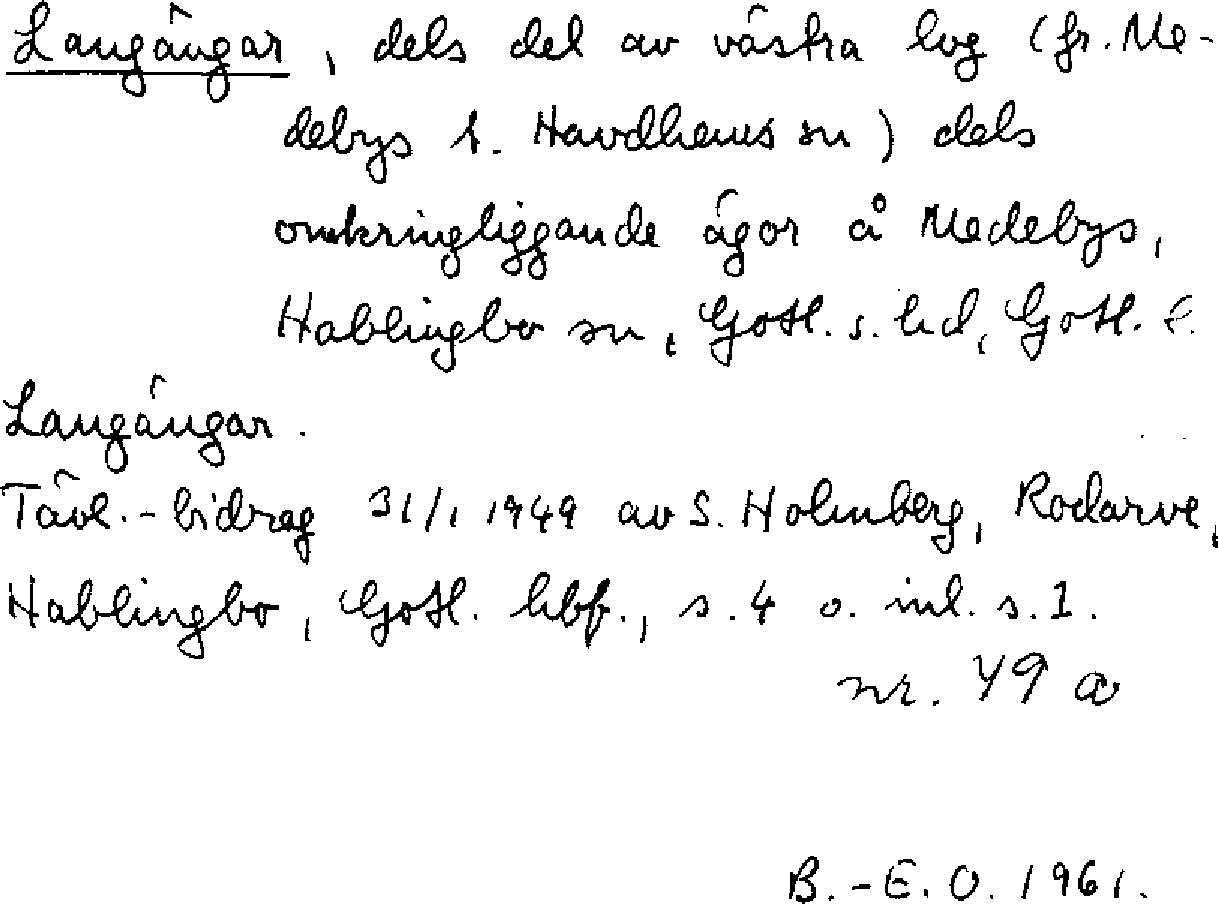 Langängar, dels del av västra log (fr. Me-
debys t. Havdhems sn) dels
omkringliggande ägor å Medebys,
Hablingbo sn, Gotl. s. hd, Gotl. l.
Langängar.
Tävl.-bidrag 31/1 1949 av S. Holmberg, Rodarve,
Hablingbo, Gotl. hbf., s. 4 o. inl. s. 1.
nr. 49 a
B.-E. O. 1961.